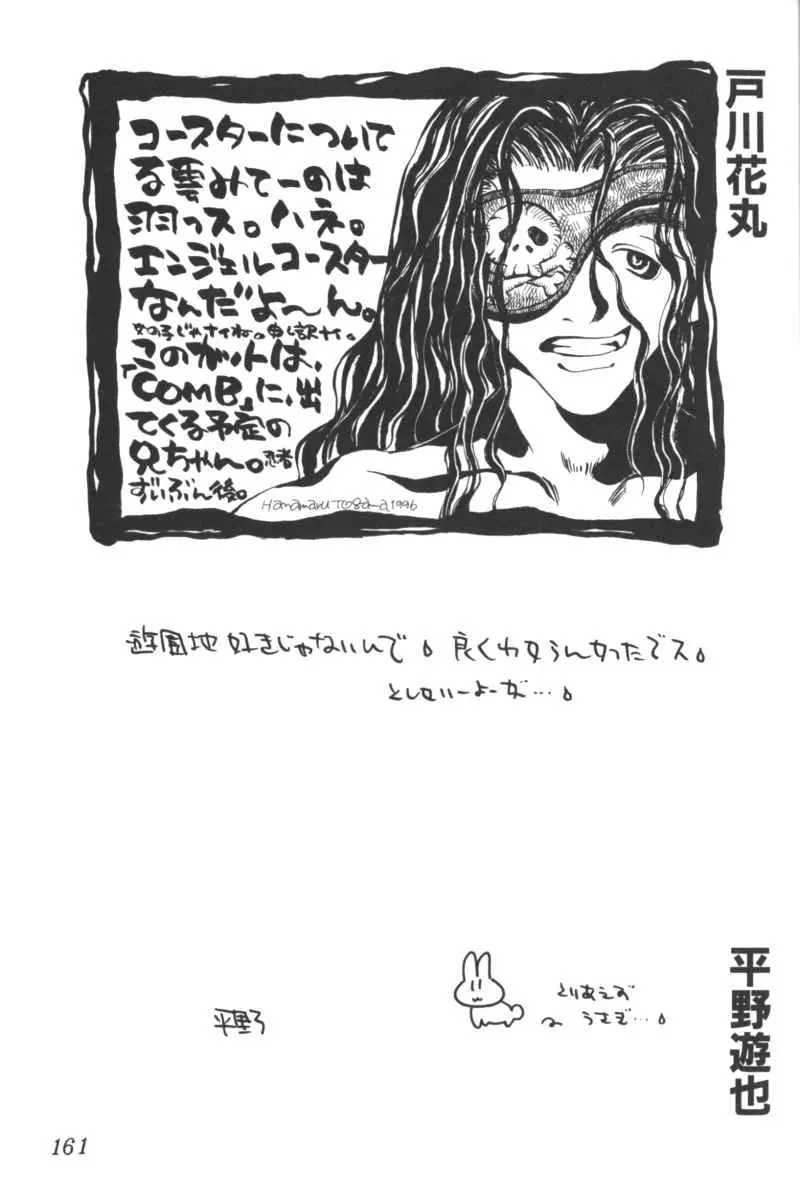 戸川花丸
コースターについて
る雲みてーのは
羽っス。ハネ。
エンジェルコースター
なんだよ〜ん。
女の子じゃナイね。申し訳ナイ。
このガットは、
「COMB」に、出
てくる予定の
兄ちゃん。忍者
ずいぶん後。
Hanamaru TOGAWA,1996
遊園地好きじゃないんで。良くわかんなかったでス。
としせいーよーだ…。
平野遊也
とりあえず
うさぎ…。
平野
161